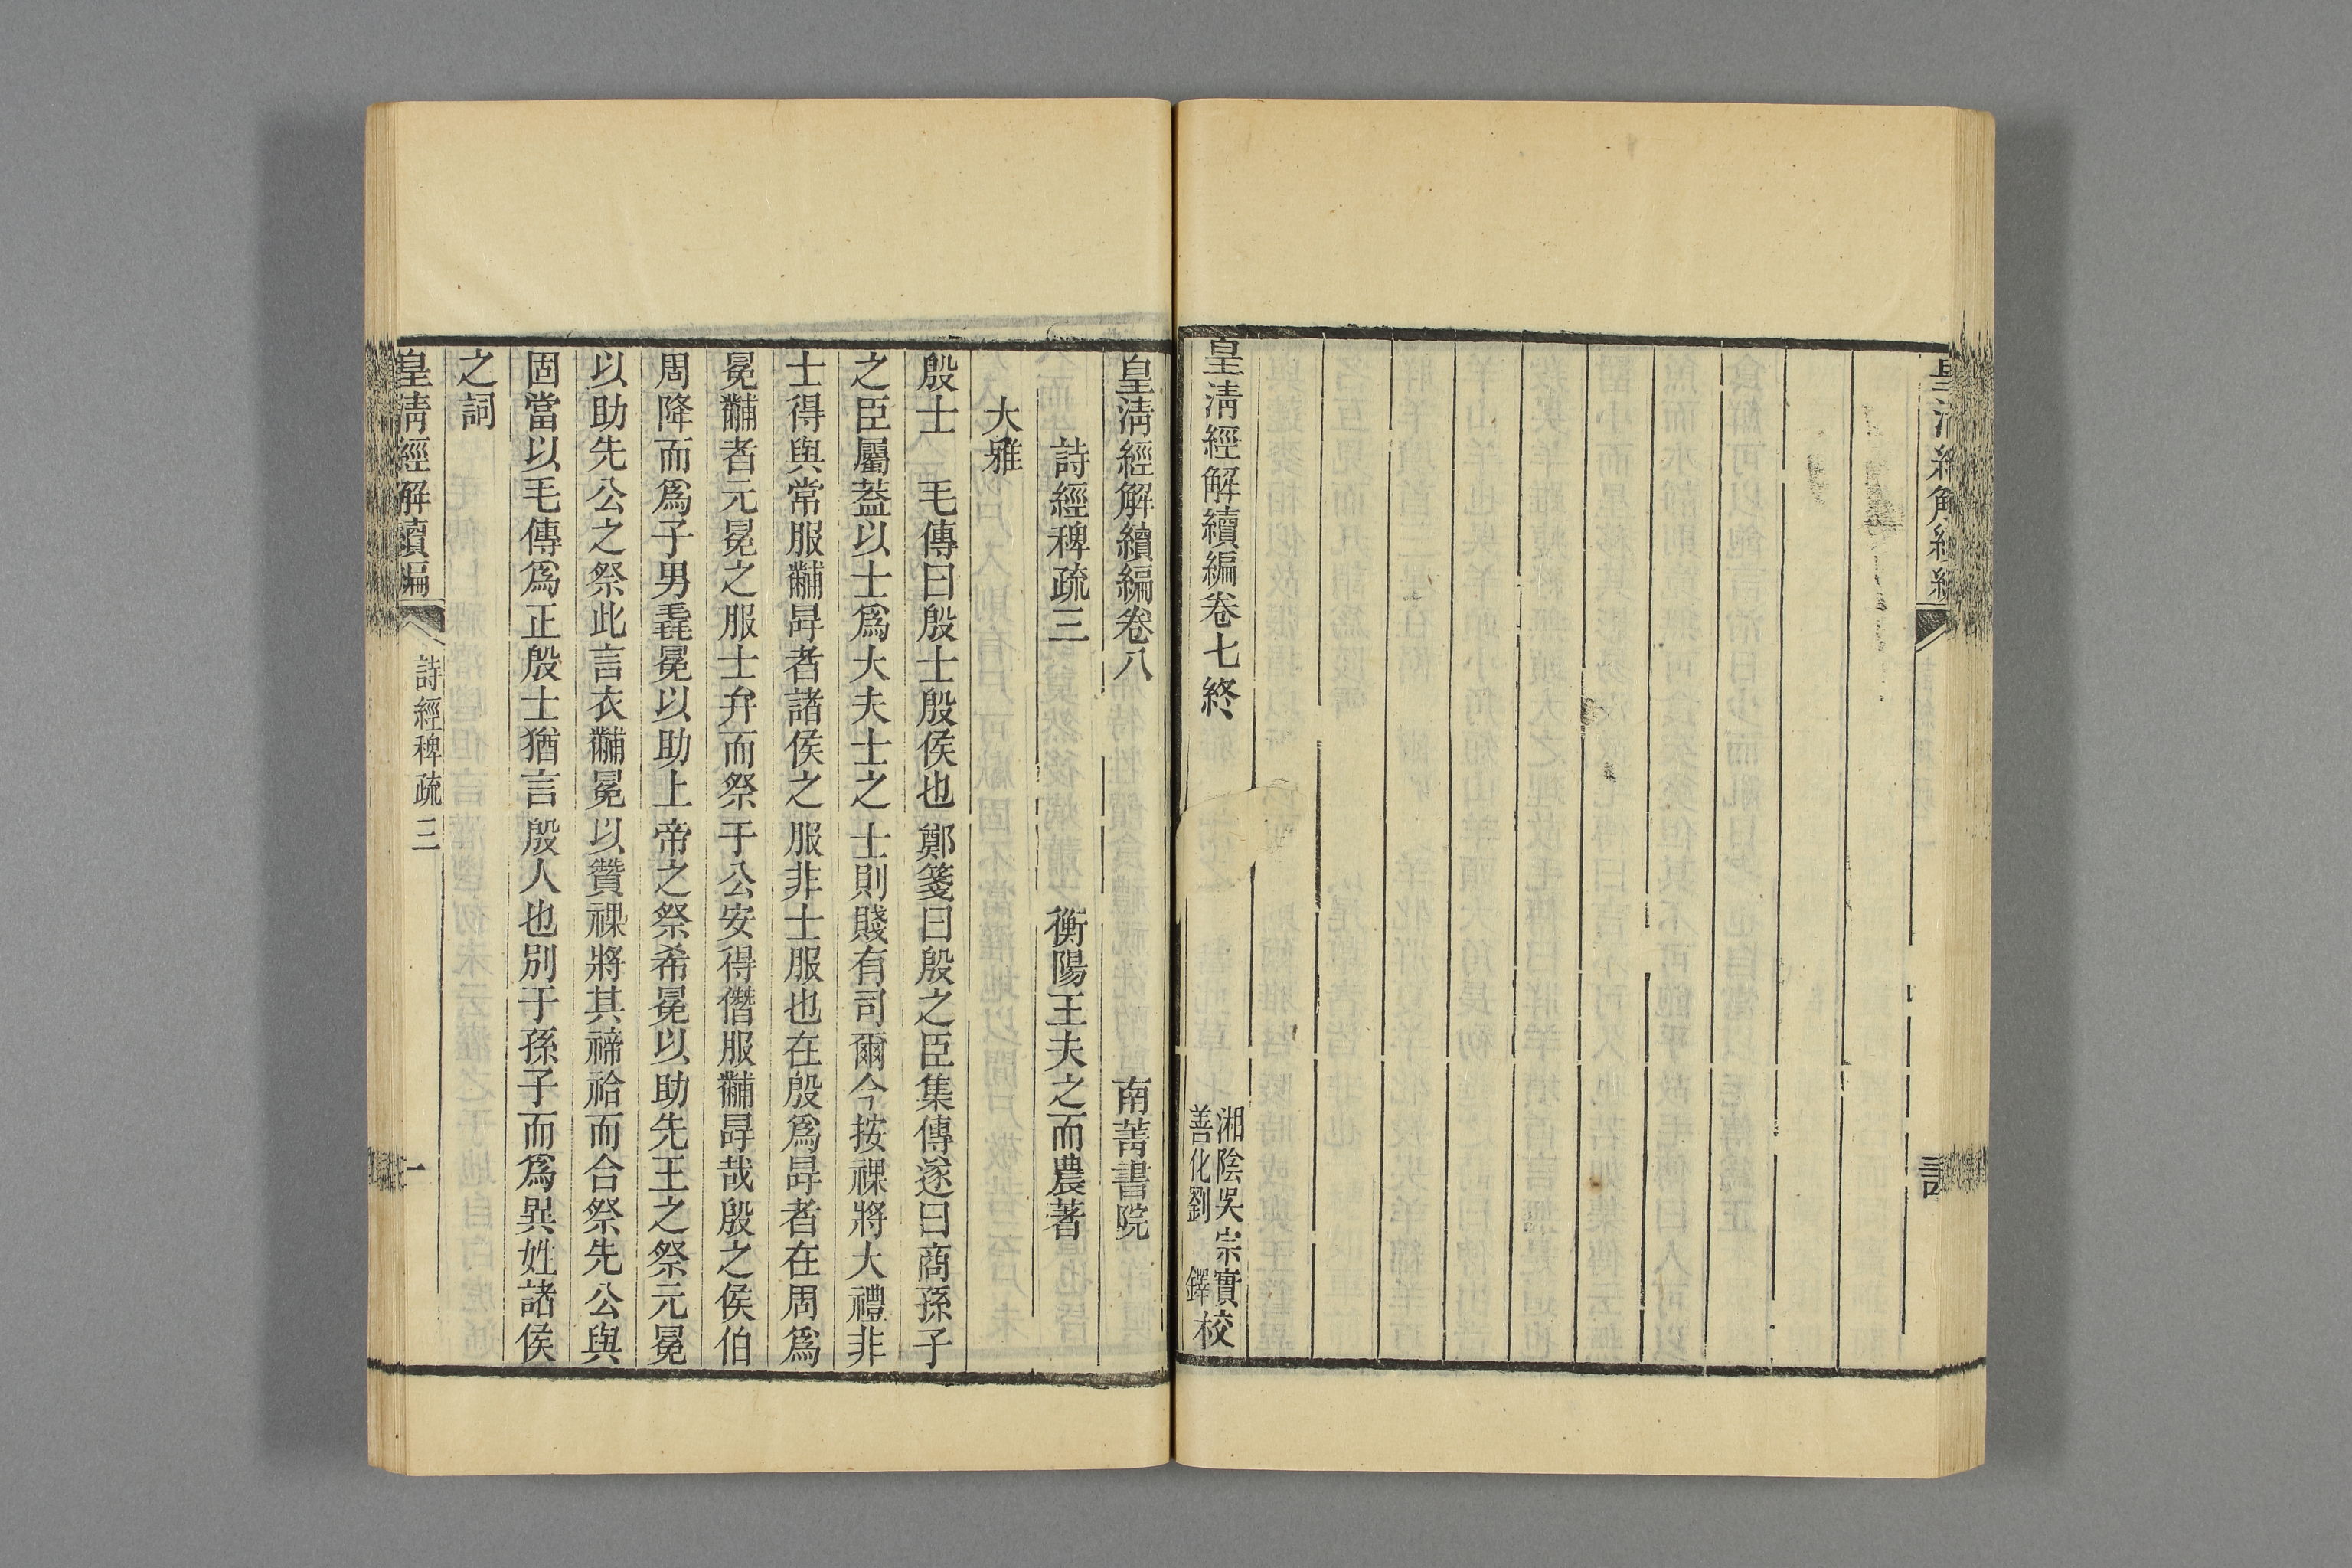 皇清經解續編卷七終
湘陰吳宗實
善化劉 鐸
校
皇清經解續編卷八
南菁書院
詩經稗疏三
衡陽王夫之而農著
大雅
殷士 毛傳曰殷士殷侯也鄭箋曰殷之臣集傳遂曰商孫子
之臣屬蓋以士爲大夫士之士則賤有司爾今按祼將大禮非
士得與常服黼冔者諸侯之服非士服也在殷爲冔者在周爲
冕黼者元冕之服士弁而祭于公安得僭服黼冔哉殷之侯伯
周降而爲子男毳冕以助上帝之祭希冕以助先王之祭元冕
以助先公之祭此言衣黼冕以贊祼將其禘祫而合祭先公與
固當以毛傳爲正殷士猶言殷人也別于孫子而爲異姓諸侯
之詞
皇清經解續編
詩經稗疏三
一